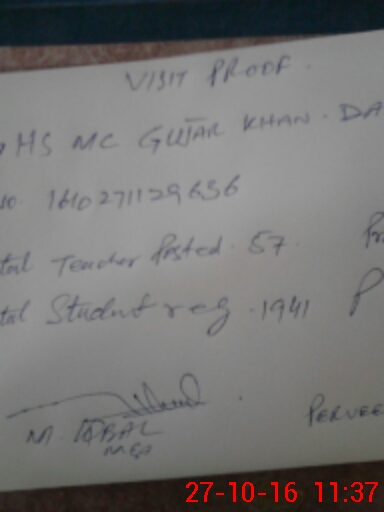 VISIT PROOF.
HS MC GUJAR KHAN. DA
no. 1610271129636
tal Teacher Posted. 57.
tal Student reg. 1941 P
M. IQBAL PERVEE
MEA
27-10-16 11:37